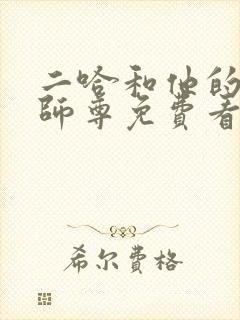 二哈和他的
師尊免費看
希尔費格